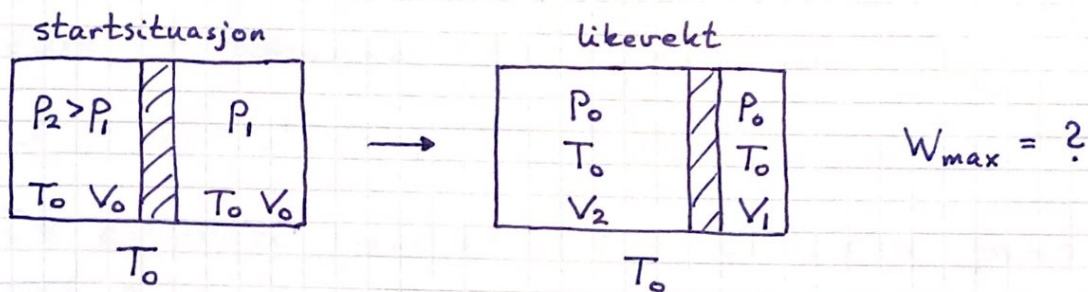 startsituasjon
P₂ > P₁
P₁
T₀ V₀
T₀ V₀
T₀
likevekt
P₀
T₀
V₂
P₀
T₀
V₁
T₀
W_max = ?